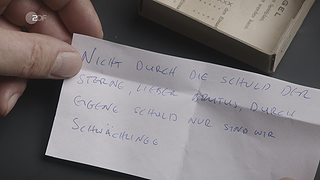 ZDF
GEL
XX
NICHT DURCH DIE SCHULD DER
STERNE, LIEBER BRUTUS, DURCH
EIGENE SCHULD NUR SIND WIR
SCHWÄCHLINGE